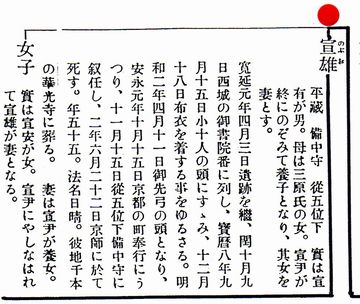 宣雄
のぶお
平蔵　備中守　従五位下　實は宣
有が男。母は三原氏の女。宣尹が
終にのぞみて養子となり、其女を
妻とす。
寬延元年四月三日遺跡を繼、閏十月九
日西城の御書院番に列し、寶曆八年九
月十五日小十人の頭にすゝみ、十二月
十八日布衣を着する事をゆるさる。明
和二年四月十一日御先弓の頭となり、
安永元年十月十五日京都の町奉行にう
つり、十一月十五日従五位下備中守に
叙任し、二年六月二十二日京師に於て
死す。年五十五。法名日晴。彼地千本
の華光寺に葬る。　妻は宣尹が養女。
女子
實は宣安が女。宣尹にやしなはれ
て宣雄が妻となる。